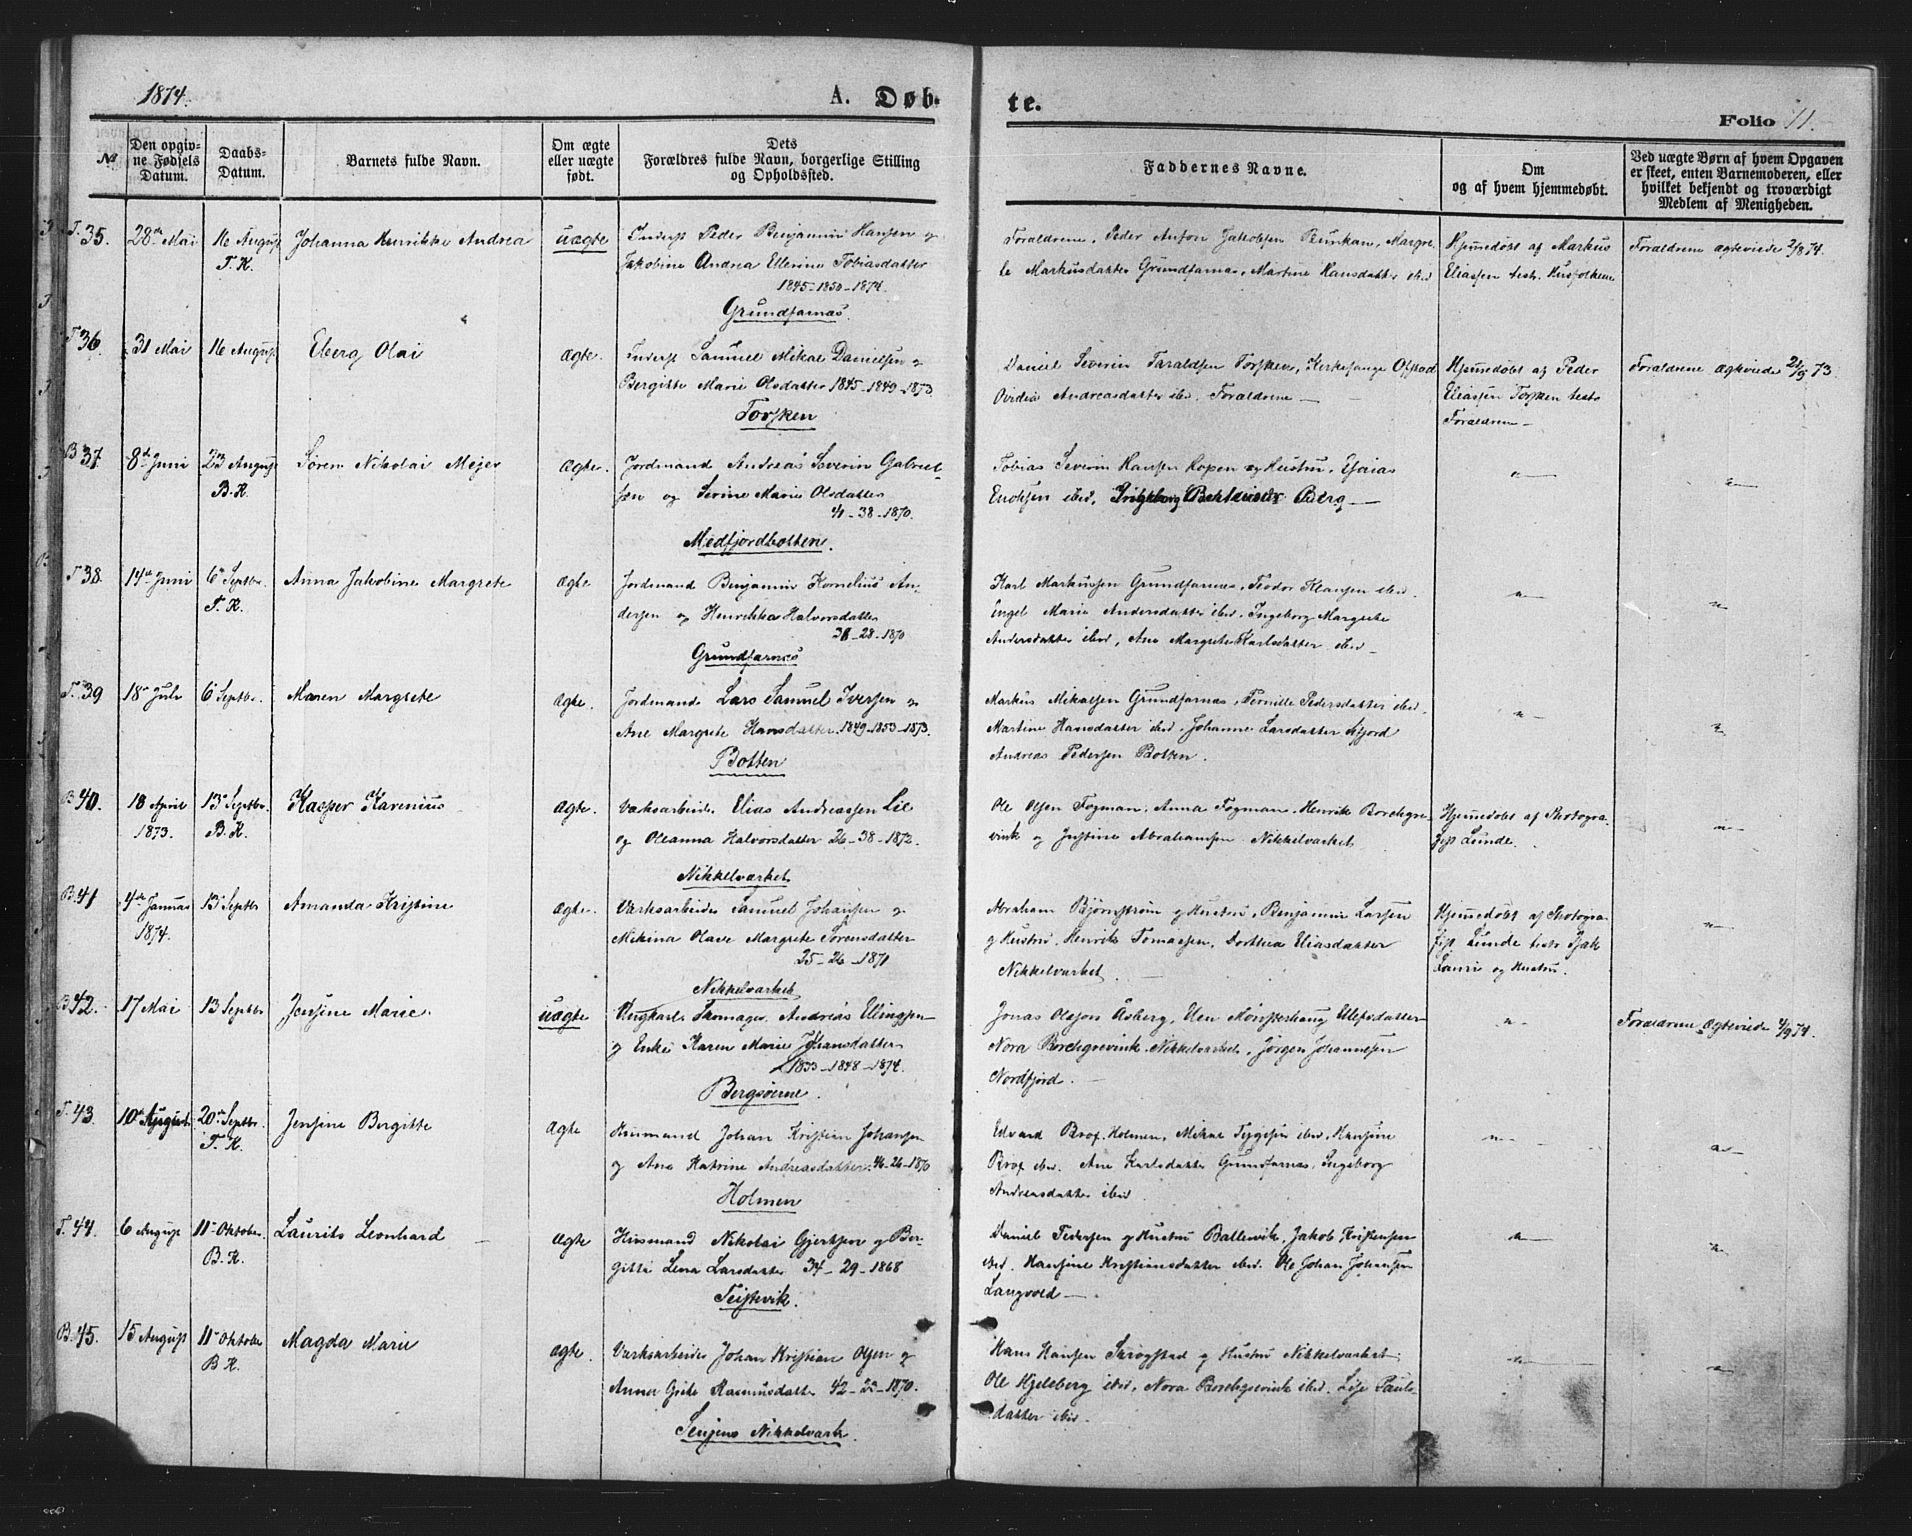 1874.
A. Døb-
te.
Folio 11.
№
Den opgiv-
ne Fødsels
Datum.
Daabs-
Datum.
Barnets fulde Navn.
Om ægte
eller uægte
født.
Dets
Forældres fulde Navn, borgerlige Stilling
og Opholdssted.
Faddernes Navne.
Om
og af hvem hjemmedøbt.
Ved uægte Børn af hvem Opgaven
er skeet, enten Barnemoderen, eller
hvilket bekjendt og troværdigt
Medlem af Menigheden.
T. 35. 28de Mai 16 August Johanna Henrikke Andrea uægte Inderst Peder Benjamin Hansen og
T. K. Jakobine Andrea Ellerine Tobiasdatter
1845-1850-1874.
Grundfarnæs.
Forældrene, Peder Anton Jakobsen Margre-
te Markusdatter Grundfarnæs, Martine Hansdatter ibid
Hjemedøbt af Markus
Eliassen test. Husfolkene
Forældrene ægteviede 2/8 74.
T. 36. 31 Mai 16 August Eberg Olai ægte. Inderst Samuel Mikal Danielsen og
Bergitte Marie Olsdatter 1845-1849-1873.
Torsken
Daniel Severin Taraldsen Torsken, Kirkesanger Ofstad
Ovidia Andreasdatter ibid. Forældrene —
Hjemedøbt af Peder
Eliassen Torsken test.
Forældrene —
Forældrene ægteviede 21/9 73.
B 37. 8de Juni 23 August Søren Nikolai Mejer ægte. Jordmand Andreas Severin Gabriel-
B. K. sen og Serine Marie Olsdatter
41-38-1870.
Medfjordbotten.
Tobias Severin Hansen Kopen og Hustru, Esaias
Enoksen ibid, Ingeborg Berg —
T. 38. 14de Juni 6te Septbr. Anna Jakobine Margrete ægte Jordmand Benjamin Kornelius An-
T. K. dersen og Henrikka Halvorsdatter
28-1870
Grundfarnæs
Karl Markussen Grundfarnæs, Teodor Klausen ibid.
Engel Marie Andersdatter ibid, Ingeborg Margrete
Andersdatter ibid, Ane Margrete Karlsdatter ibid —
T. 39 18de Juli 6te Septbr. Maren Margrete ægte. Jordmand Lars Samuel Iversen og
Ane Margrete Hansdatter. 1849-1853-1873.
Botten
Markus Mikalsen Grundfarnæs, Pernille Pedersdatter ibid.
Martine Hansdatter ibid, Johanne Larsdatter
Andreas Pedersen Botten.
B. 40. 18 April 13de Septbr. Kasper Karenius ægte. Værksarbeider Elias Andreassen Lie
1873. B. K. og Oleanna Halvorsdatter 26-38-1872.
Nikkelværket
Ole Olsen Fogman, Anna Fogman, Henrik Borchgre-
vink og Justine Abrahamsen Nikkelværket
Hjemedøbt af Photogra-
fist Lunde.
B. 41 4de Januar 13de Septbr Amanda Kristine ægte. Værksarbeider Samuel Johansen og
1874. Mikina Olave Margrete Sørensdatter
25-26-1871
Nikkelværket
Abraham Bjørnstrøm og Hustru, Benjamin Larsen
og Hustru. Henrik Tomassen, Dorthea Eliasdatter
Nikkelværket
Hjemedøbt af Photogra-
fist Lunde test. Isak
og Hustru.
B. 42. 17 Mai 13 Septbr Jensine Marie. uægte Ungkarl Skomager Andreas Ellingsen
og Enke Karen Marie
1853-1848-1874.
Bergsøerne.
Jonas Olsson Åsberg, Elen Ellefsdatter
Nora Borchgrevink Nikkelværket, Jørgen Johannesen
Nordfjord.
Forældrene ægteviede 4/9 74.
T. 43. 10de August. 20de Septbr. Jensine Bergitte ægte Husmand Johan Kristian Johansen
T. K. og Ane Katrine Andreasdatter. 46-26-1870
Holmen
Edvard Brox Holmen, Mikal ibid, Hansine
Brox ibid. Ane Karlsdatter Grundfarnæs, Ingeborg
Andreasdatter ibid.
T. 44. 6 August 11te Oktober. Laurits Leonhard ægte Husmand Nikolai Gjertsen og Ber-
B. K. gitte Lena Larsdatter 34-29-1868
Teistevik.
Daniel Pedersen og Hustru Ballesvik, Jakob Kristensen
ibid. Hansine Kristiansdatter ibid. Ole Johan Johansen
Langvold —
B. 45. 15 August 11te Oktober Magda Marie ægte. Værksarbeider Johan Kristian Olsen og
B K. Anna Grete Rasmusdatter 42-22-1870.
Senjens Nikkelværk.
Hans Hansen Skrogstad og Hustru Nikkelværket.
Ole Hjelsberg ibid, Nora Borchgrevink ibid. Lise Pauls-
datter ibid.